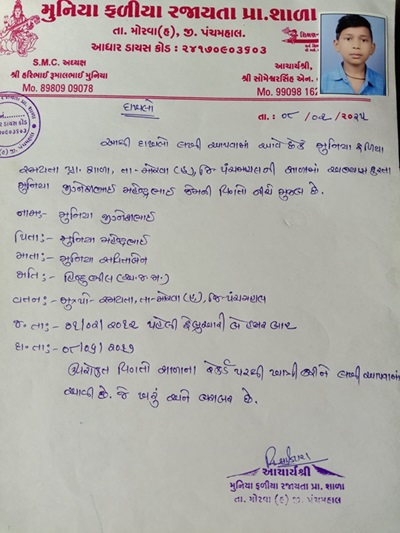 મુનિયા ફળીયા રજાયતા પ્રા.શાળા
તા. મોરવા(હ), જી. પંચમહાલ.
આધાર ડાયસ કોડ : ૨૪૧૭૦૯૦૩૬૦૩
S.M.C. અધ્યક્ષ
શ્રી હરિભાઈ રૂમાલભાઈ મુનિયા
Mo. 89809 09078
આચાર્યશ્રી,
શ્રી સોમેશ્વરસિંહ એન.
Mo. 99098 162
દાખલો
તા. : ૦૮/૦૨/૨૦૨૫
આથી દાખલો લખી આપવામાં આવે છે કે મુનિયા ફળિયા
રજાયતા પ્રા.શાળા, તા-મોરવા(હ), જિ-પંચમહાલની શાળામાં અભ્યાસ કરતા
મુનિયા જીગ્નેશભાઈ મહેન્દ્રભાઈ જેમની વિગતો નીચે મુજબ છે.
નામઃ- મુનિયા જીગ્નેશભાઈ
પિતાઃ- મુનિયા મહેન્દ્રભાઈ
માતાઃ- મુનિયા
જાતિઃ- હિન્દુ ભીલ (અ.જ.જા.)
વતનઃ- મુ.પો- રજાયતા, તા-મોરવા(હ), જિ-પંચમહાલ
જ.તાઃ- ૦૧/૦૨/૨૦૧૨ પહેલી ફેબ્રુઆરી બે હજાર બાર
ઉપરોક્ત વિગતો શાળાના રેકર્ડ પરથી ખાત્રી કરીને લખી આપવામાં
આવી છે. જે ખરું અને બરાબર છે.
આચાર્યશ્રી
મુનિયા ફળીયા રજાયતા પ્રા. શાળા
તા. મોરવા (હ) જી. પંચમહાલ